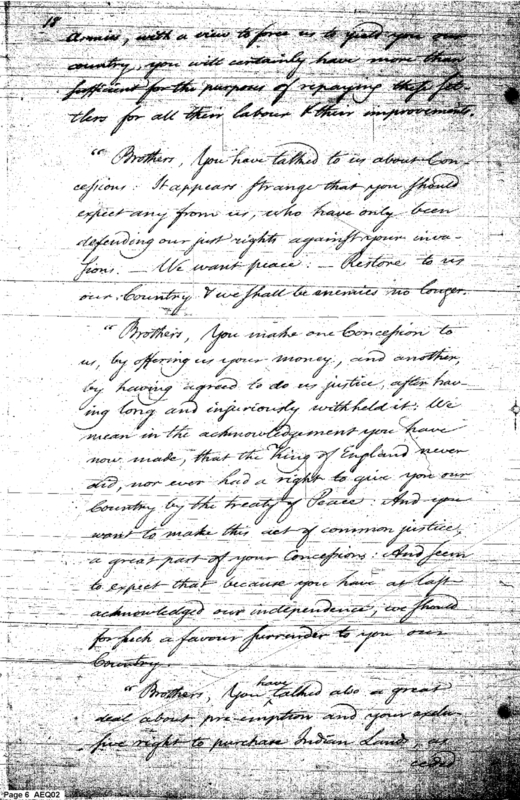 18
Armies, with a view to force us to yield you our
country, you will certainly have more than
sufficient for the purposes of repaying these set-
tlers for all their labour & their improvements.
"Brothers, You have talked to us about Con-
cessions: It appears strange that you should
expect any from us, who have only been
defending our just rights against your inva-
sions. — We want peace: — Restore to us
our Country & we shall be enemies no longer.
"Brothers, You make one Concession to
us, by offering us your money, and another,
by having agreed to do us justice, after hav-
ing long and injuriously withheld it: We
mean in the acknowledgement you have
now made, that the King of England never
did, nor ever had a right to give you our
Country by the treaty of Peace: And you
want to make this act of common justice,
a great part of your Concessions: And seem
to expect that because you have at last
acknowledged our independence, we should
for such a favour surrender to you our
Country.
"Brothers, You have talked also a great
deal about pre-emption and your exclu-
sive right to purchase Indian Lands, as
ceded
Page 6 AEQ02